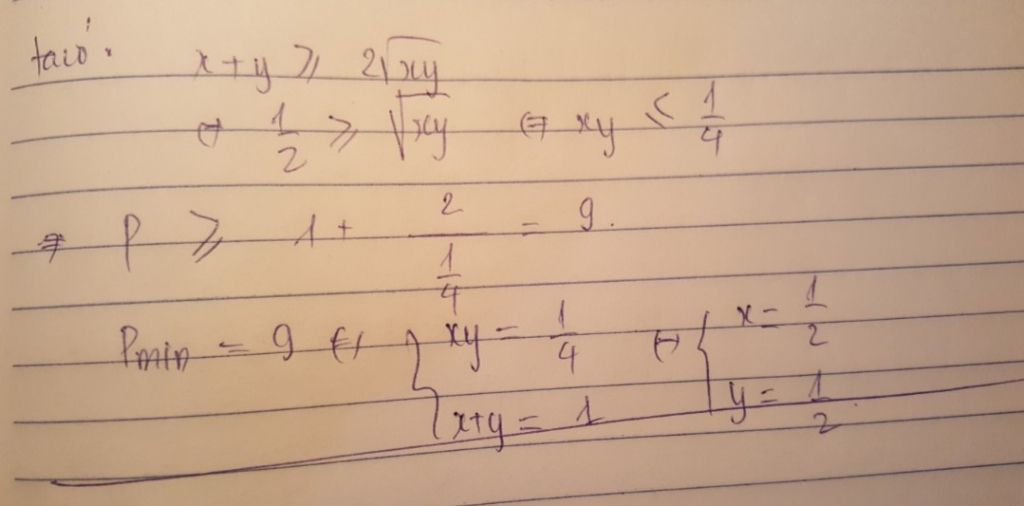 ta có: x + y ≥ 2√xy
⇔ 1/2 ≥ √xy ⇔ xy ≤ 1/4
⇒ P ≥ 1 + 2/(1/4) = 9.
Pmin = 9 ⇔ { xy = 1/4 ; x+y = 1 ⇔ { x = 1/2 ; y = 1/2